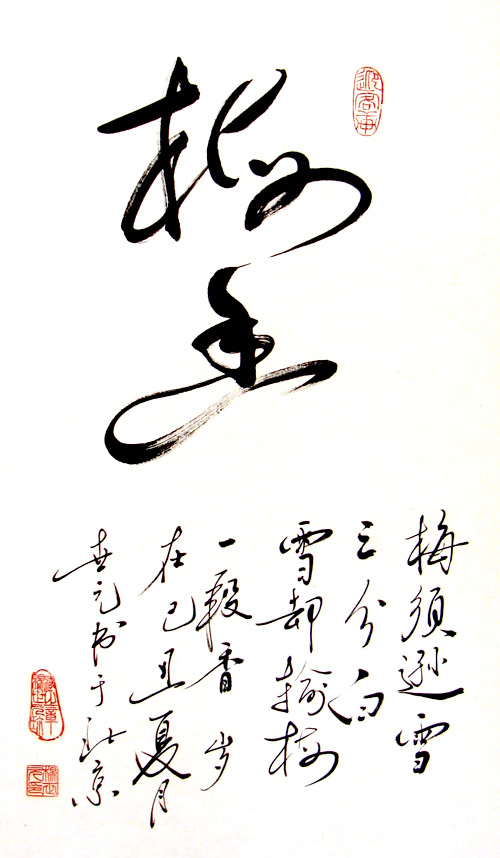 梅
香
梅須遜雪
三分白
雪却輸梅
一段香 岁
在己丑夏月
世元书于北京